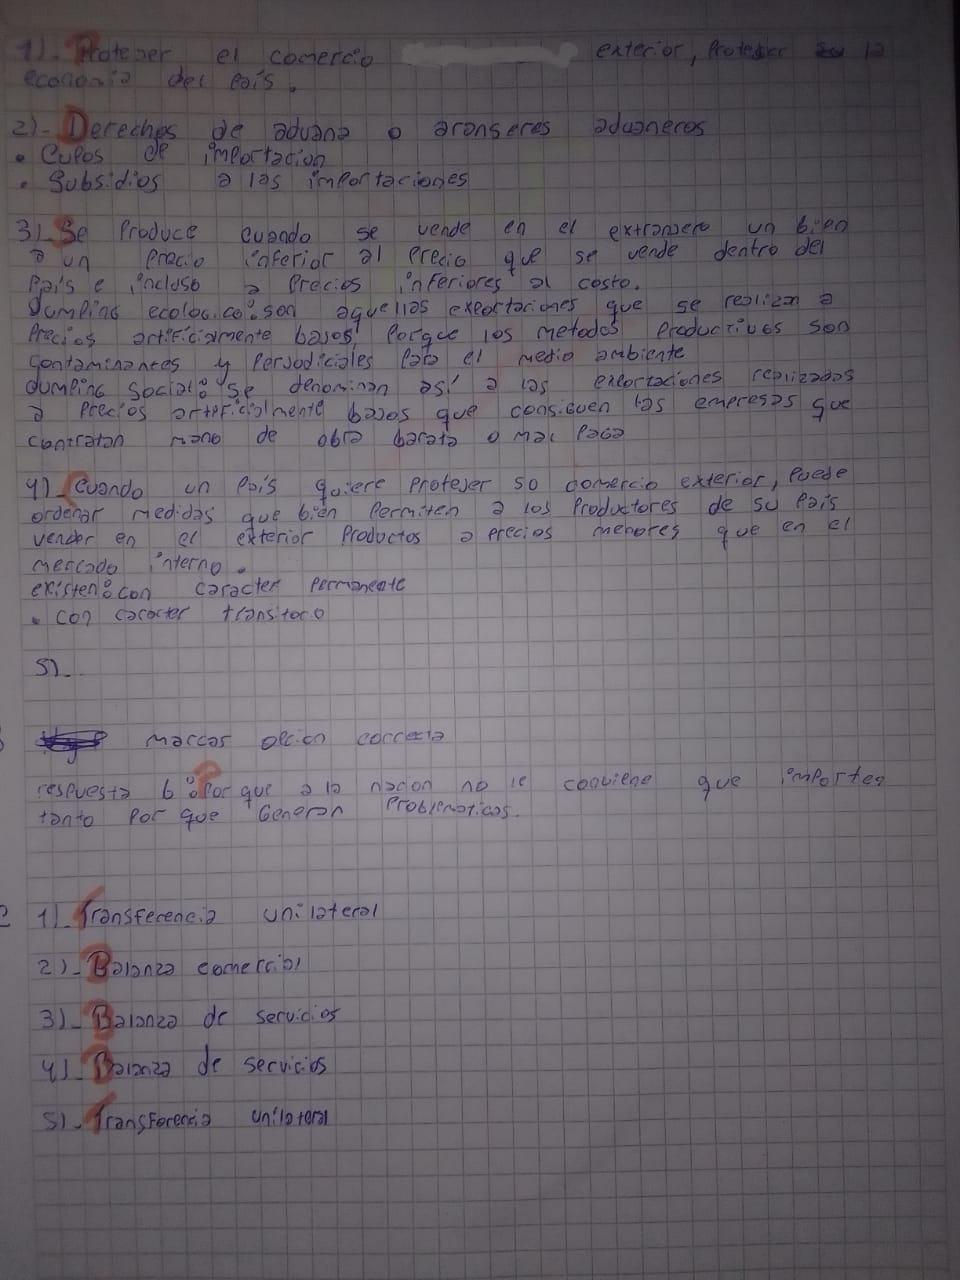 1)- Proteger el comercio exterior, Proteger la
economia del país.
2)- Derechos de aduana o aranseres aduaneros
• Cupos de importacion
• Subsidios a las importaciones
3)- Se Produce cuando se vende en el extranjero un bien
a un precio inferior al precio que se vende dentro del
País e incluso a Precios inferiores al costo.
dumping ecologico: son aquellas exportaciones que se realizan a
Precios artificialmente bajos, Porque los metodos Productivos son
contaminantes y Perjodiciales Para el medio ambiente
dumping social: se denominan así a las exportaciones realizadas
a Precios artificialmente bajos que consiguen las empresas que
contratan mano de obra barata o mal Paga
4)- Cuando un País quiere Proteger so comercio exterior, Puede
ordenar medidas que bien Permiten a los Productores de su País
vender en el exterior Productos a precios menores que en el
mercado interno.
existen: con caracter Permanente
• con caracter transitorio
5)-
marcar opcion correcta
respuesta b: Porque a la nacion no le conviene que importes
tanto Por que Generan Problematicas.
2 1)- Transferencia unilateral
2)- Balanza comercial
3)- Balanza de servicios
4)- Balanza de servicios
5)- Transferencia unilateral